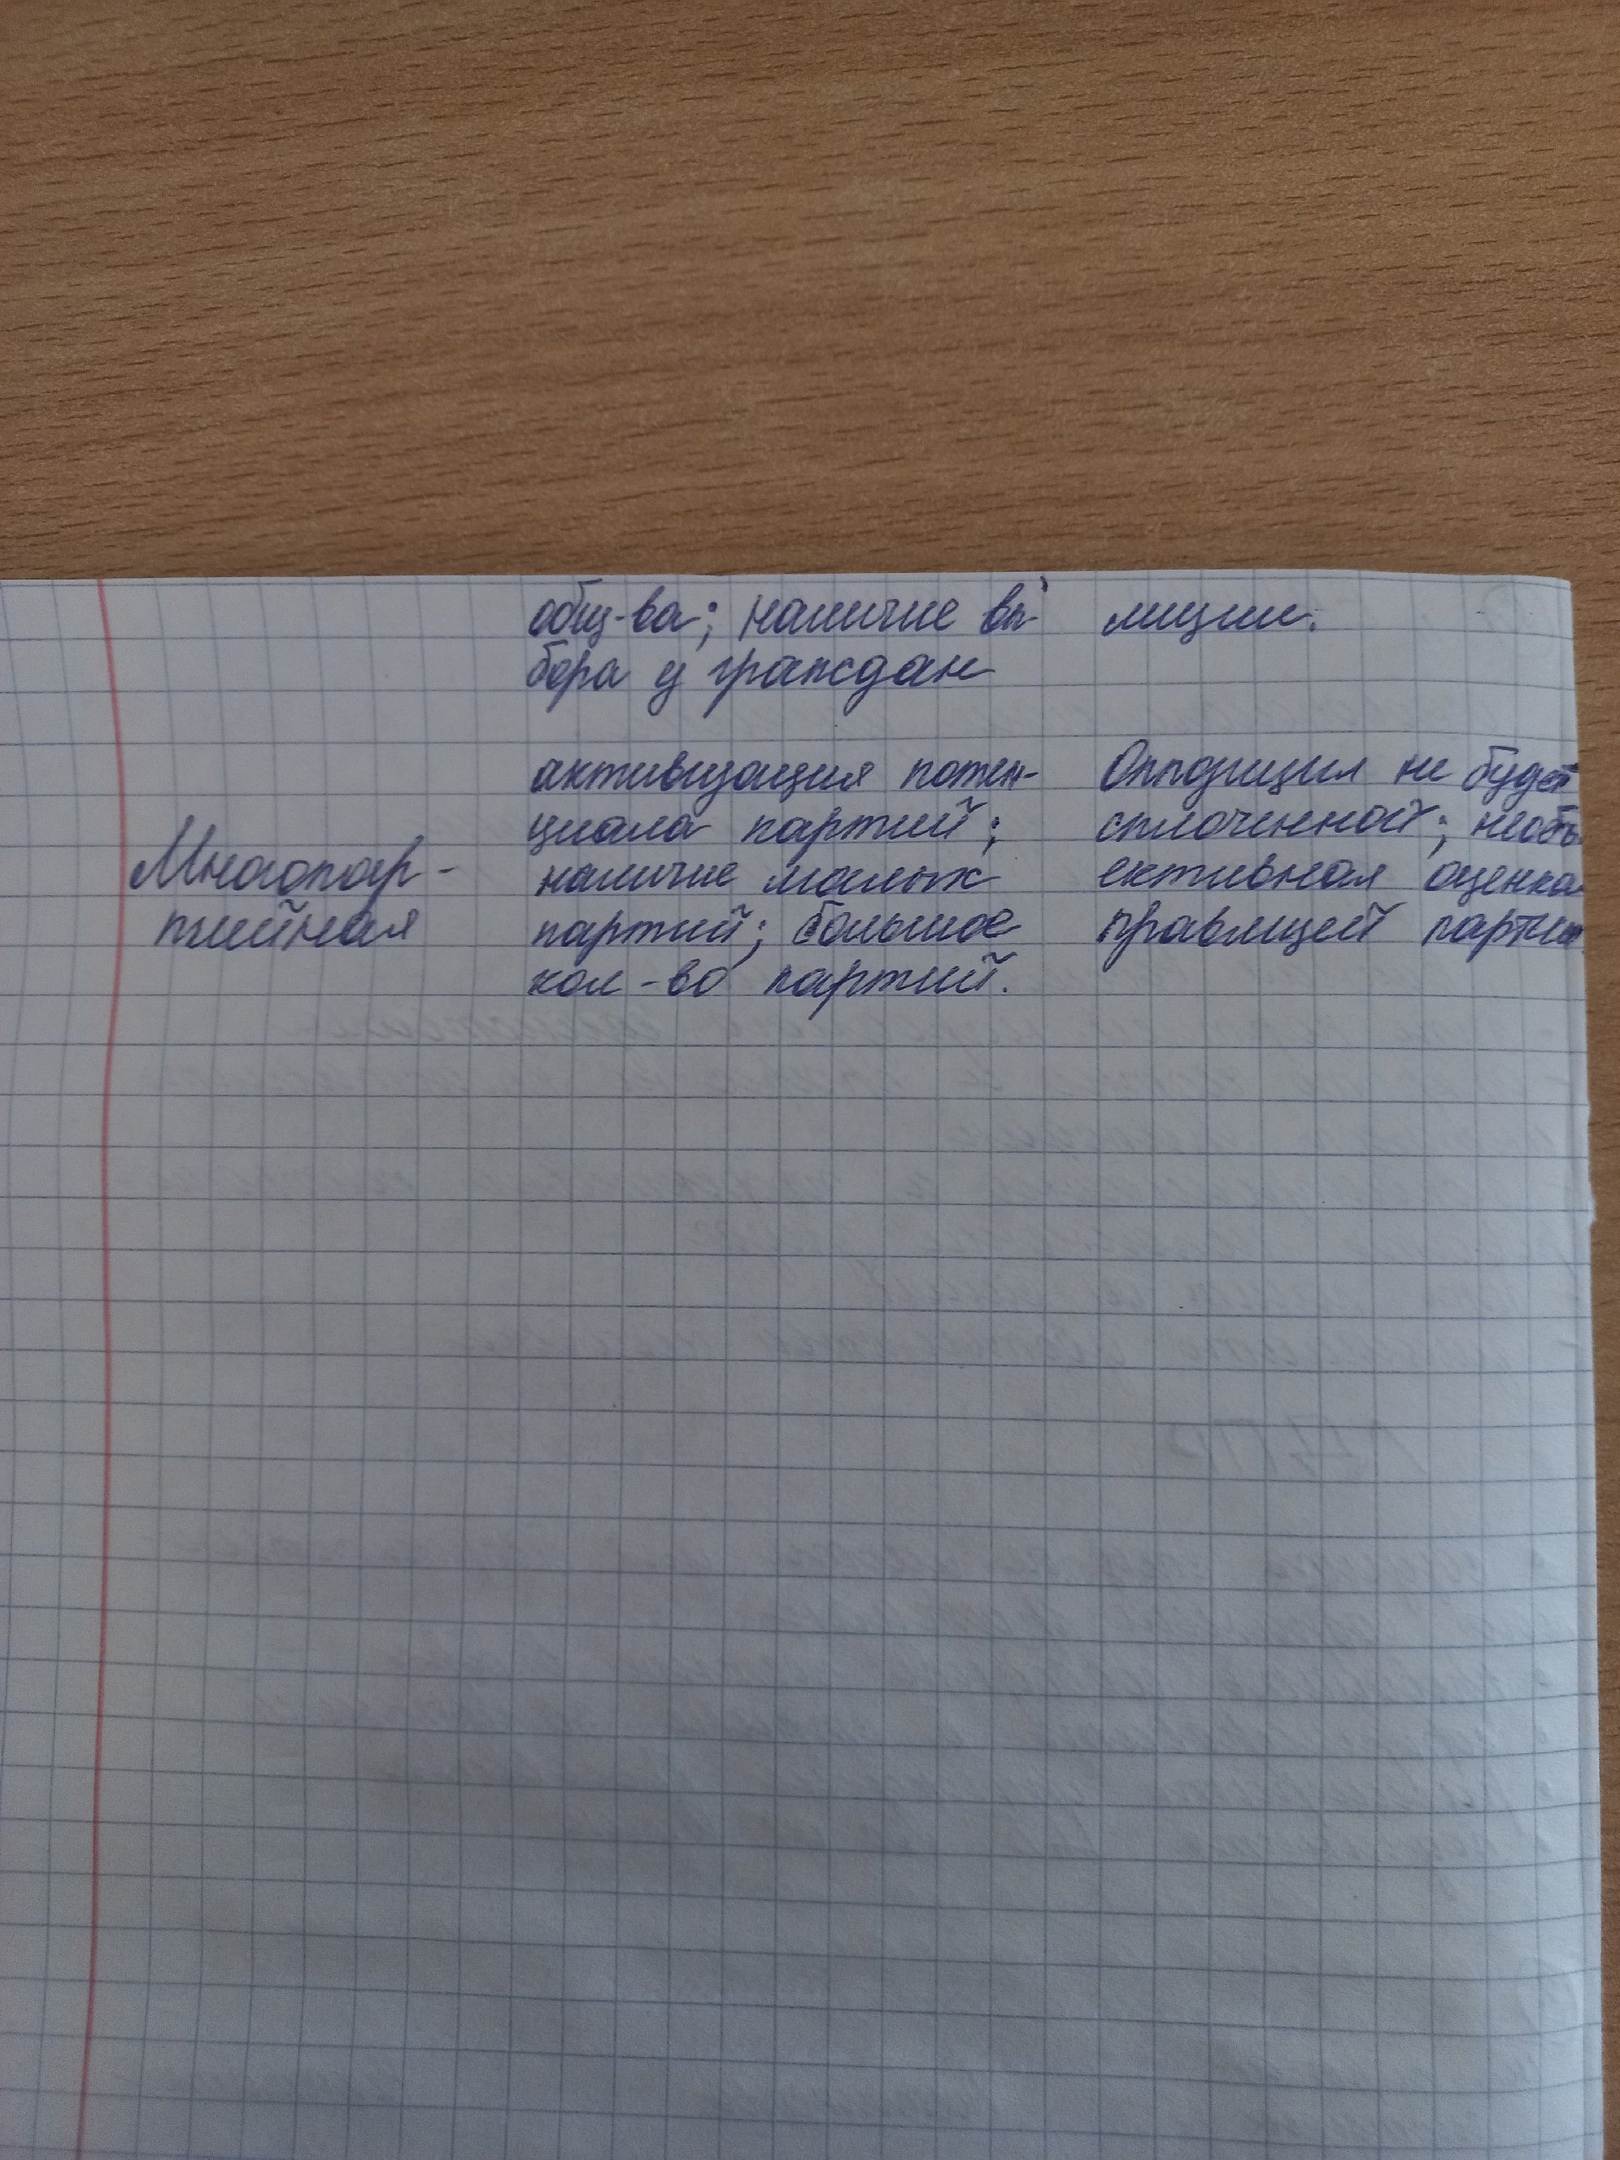 общ-ва; наличие вы-
бора у граждан
лиции.
Многопар-
тийная
активизация потен-
циала партий;
наличие малых
партий; большое
кол-во партий.
Оппозиция не будет
сплоченной; необъ
ективная оценка
правящей партии